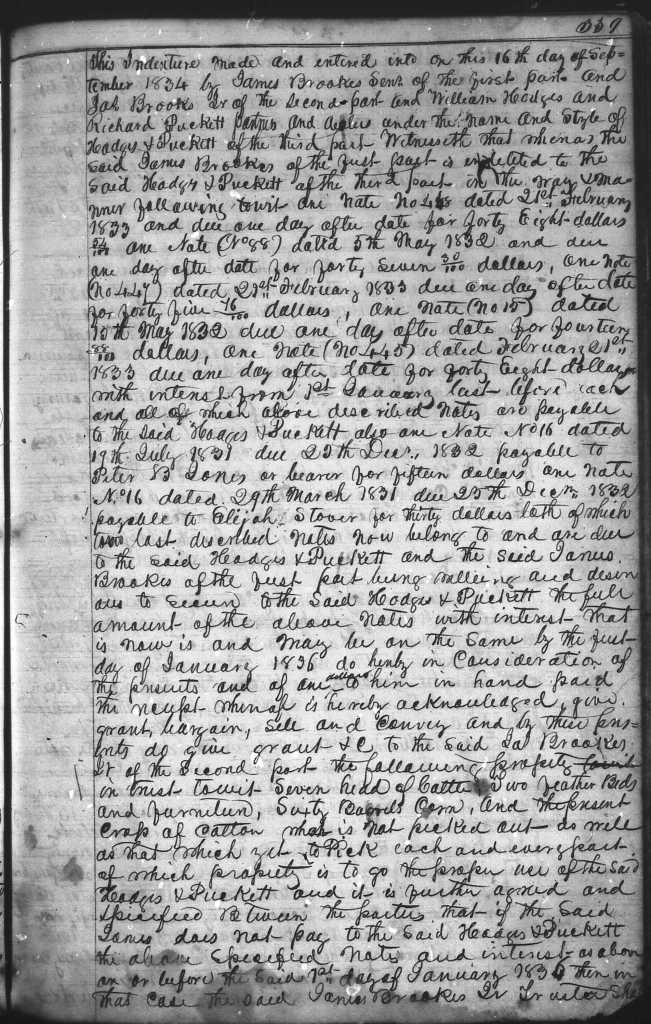 339
This Indenture made and entered into on this 16th day of Sep=
tember 1834 by James Brookes Senr. of the first part and
Jas. Brookes Jr of the Second part and William Hodges and
Richard Puckett partners and dealers under the name and Style of
Hodges & Puckett of the third part Witnesseth that whereas the
Said James Brookes of the first part is indebted to the
Said Hodges & Puckett of the third part in the way & Ma=
nner following towit one Note No 448 dated 21st February
1833 and due one day after date for forty Eight dollars
one Note (No 88) dated 5th May 1832 and due
one day after date for forty Seven 30/100 dollars, One Note
(No 447) dated 21st February 1833 due one day after date
for forty five 16/100 dollars, one Note (No 15) dated
15th May 1832 due one day after date for fourteen
88/100 dollars, One Note (No 445) dated February 21st
1833 due one day after date for forty Eight dollars
with interest from 1st January last before each
and all of which above described Notes are payable
to the Said Hodges & Puckett also one Note No 16 dated
19th July 1831 due 25th Decr, 1832 payable to
Peter B Jones or bearer for fifteen dollars one Note
No 16 dated 29th March 1831 due 25th Decr. 1832
payable to Elijah Stover for thirty dollars both of which
two last described Notes now belong to and are due
to the Said Hodges & Puckett and the Said James
Brookes of the first part being willing and desir
ous to Secure to the Said Hodges & Puckett the full
amount of the above Notes with interest that
is now is and may be on the Same by the first
day of January 1836 do hereby in Consideration of
the presents and of one dollar to him in hand paid
the receipt whereof is hereby acknowledged, give
grant, bargain, Sell and Convey and by these pres=
ents do give grant &C to the Said Jas Brookes
Jr of the Second part the following property towit
in trust towit Seven head of Cattle Two feather Beds
and furniture, Sixty Barrels Corn, and the present
Crop of Cotton what is not picked out as well
as that which yet to Pick each and every part
of which property is to go the proper use of the Said
Hodges & Puckett and it is further agreed and
Specified Between the parties that if the Said
James does not pay to the Said Hodges & Puckett
the above Specified Notes and interest as above
on or before the Said 1st day of January 1836 then in
that Case the Said James Brookes Jr Trustee Sha